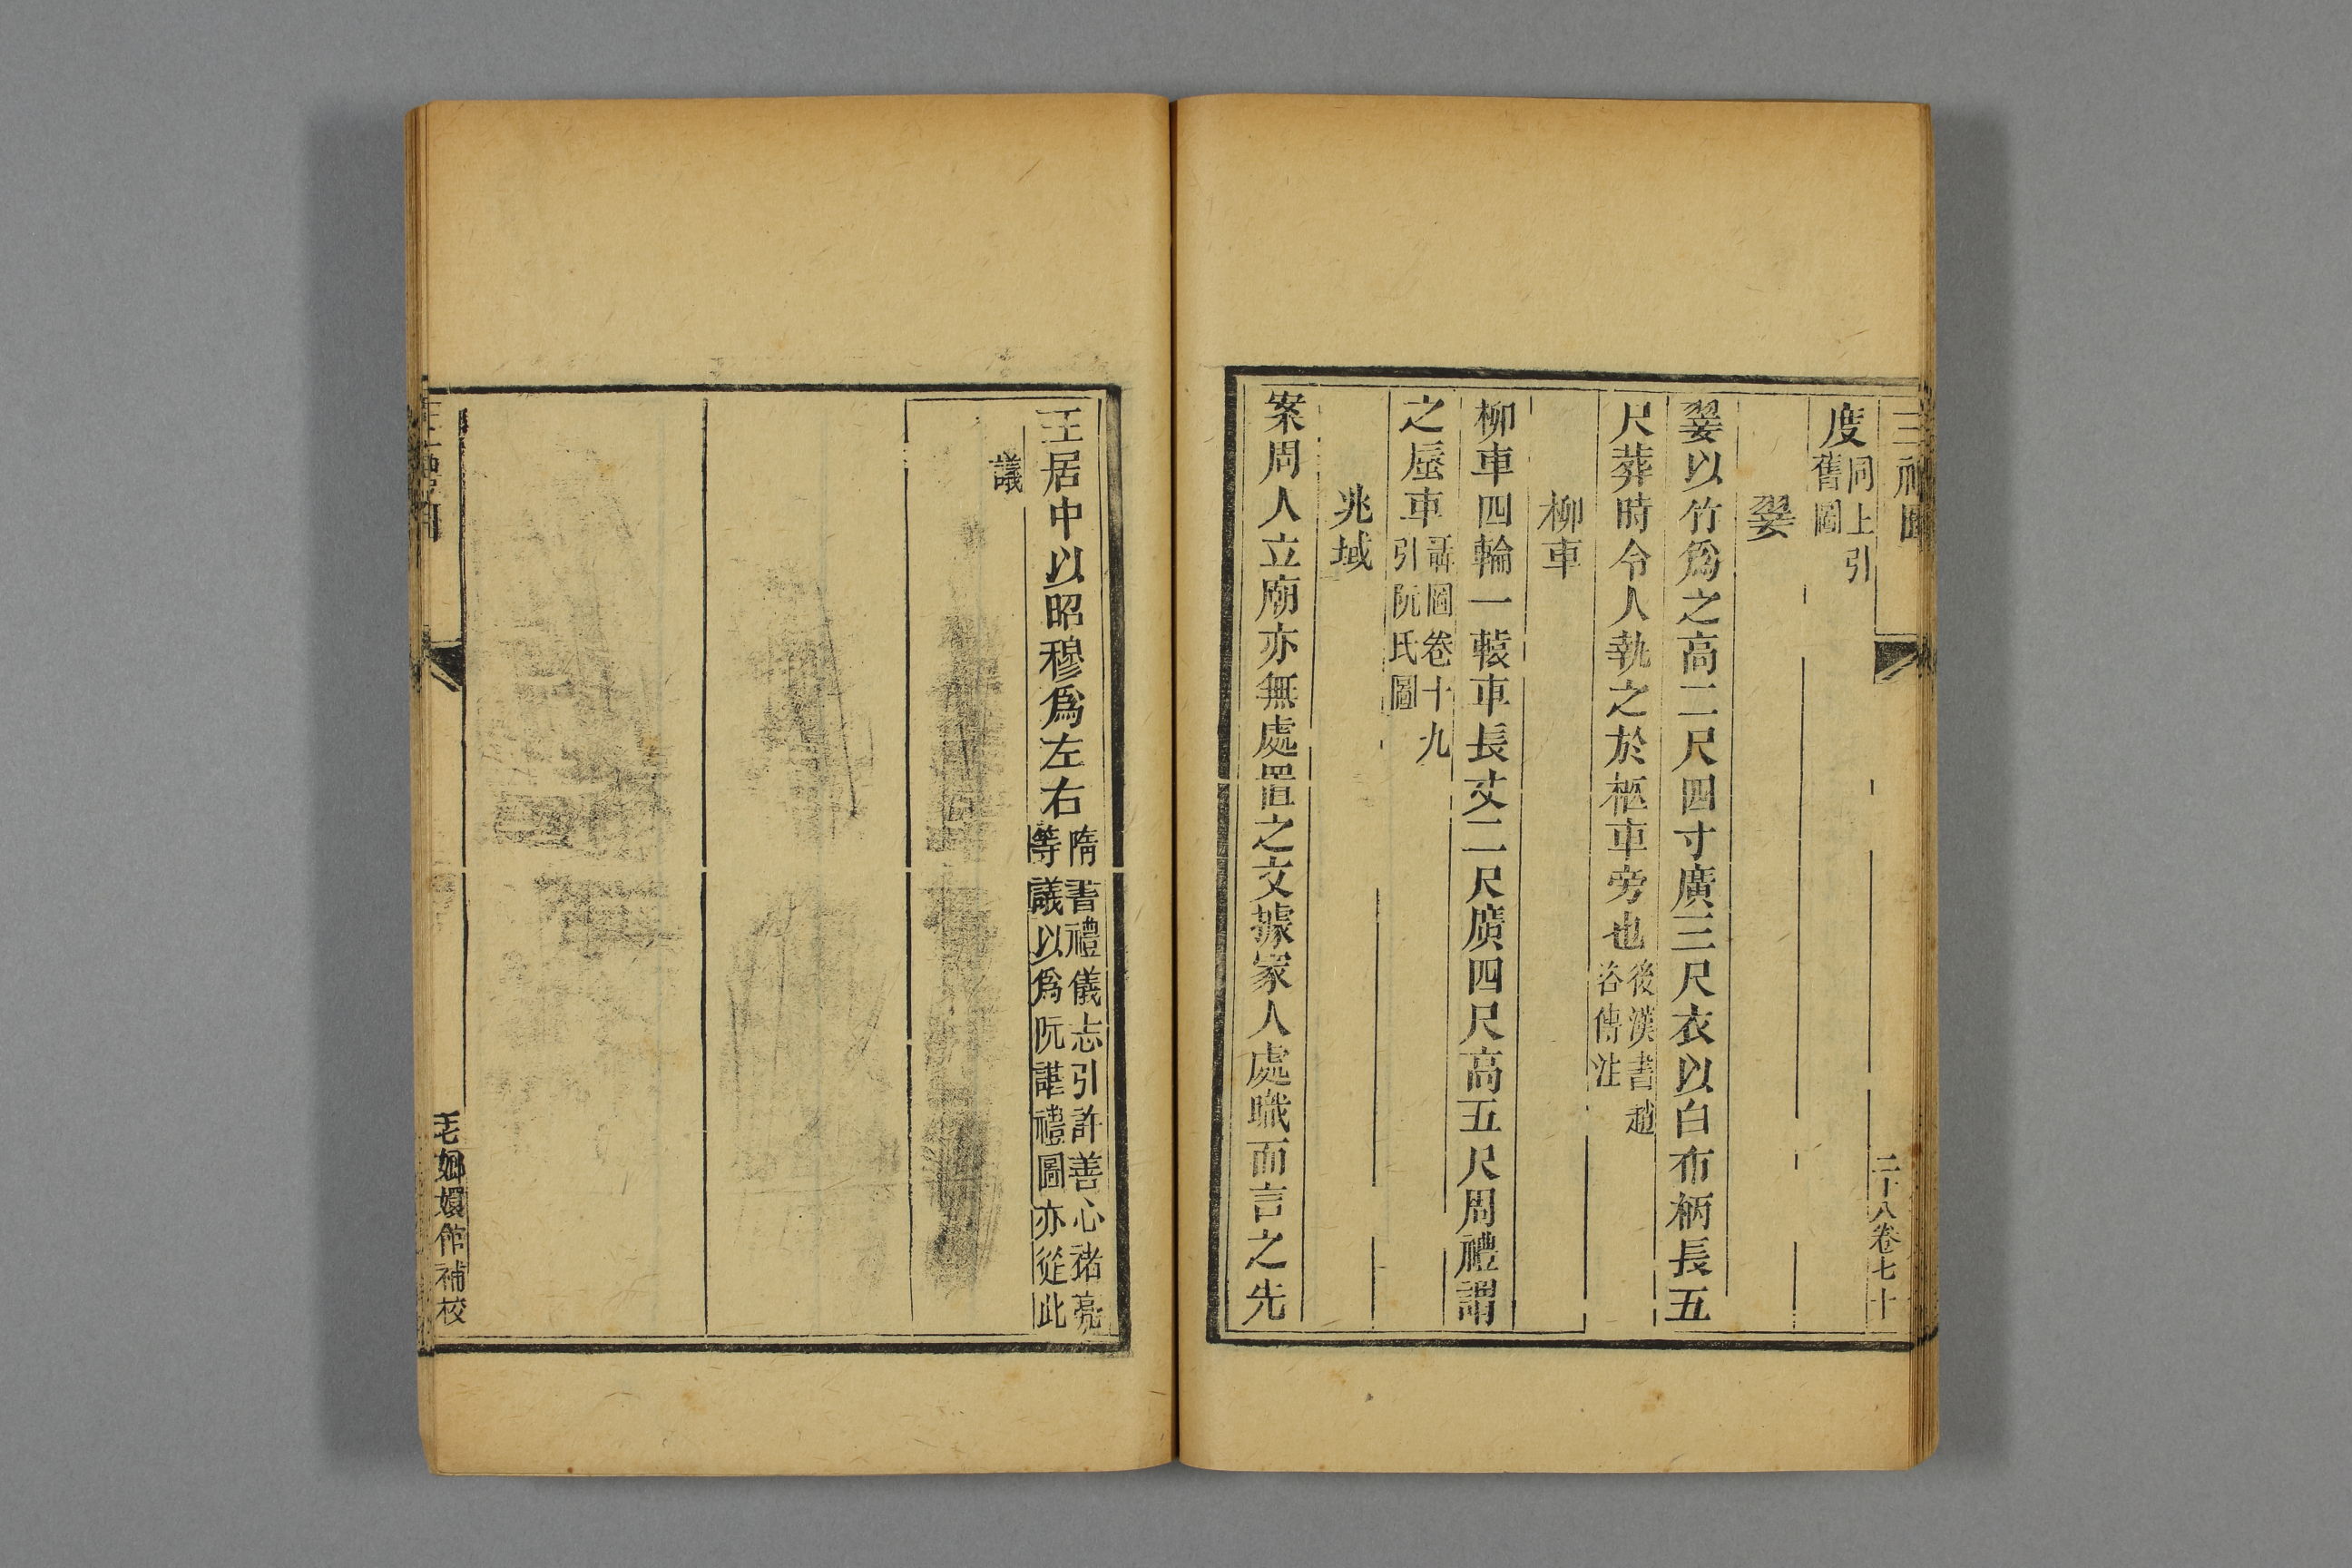 三禮圖
二十八卷七十
度同上引
舊圖
翣
翣以竹爲之高二尺四寸廣三尺衣以白布柄長五
尺葬時令人執之於柩車旁也後漢書趙
咨傳注
柳車
柳車四輪一轅車長丈二尺廣四尺高五尺周禮謂
之蜃車聶圖卷十九
引阮氏圖
兆域
案周人立廟亦無處置之文據冢人處職而言之先
王居中以昭穆爲左右隋書禮儀志引許善心褚亮
等議以爲阮諶禮圖亦從此
議
三禮圖
嫏嬛館補校